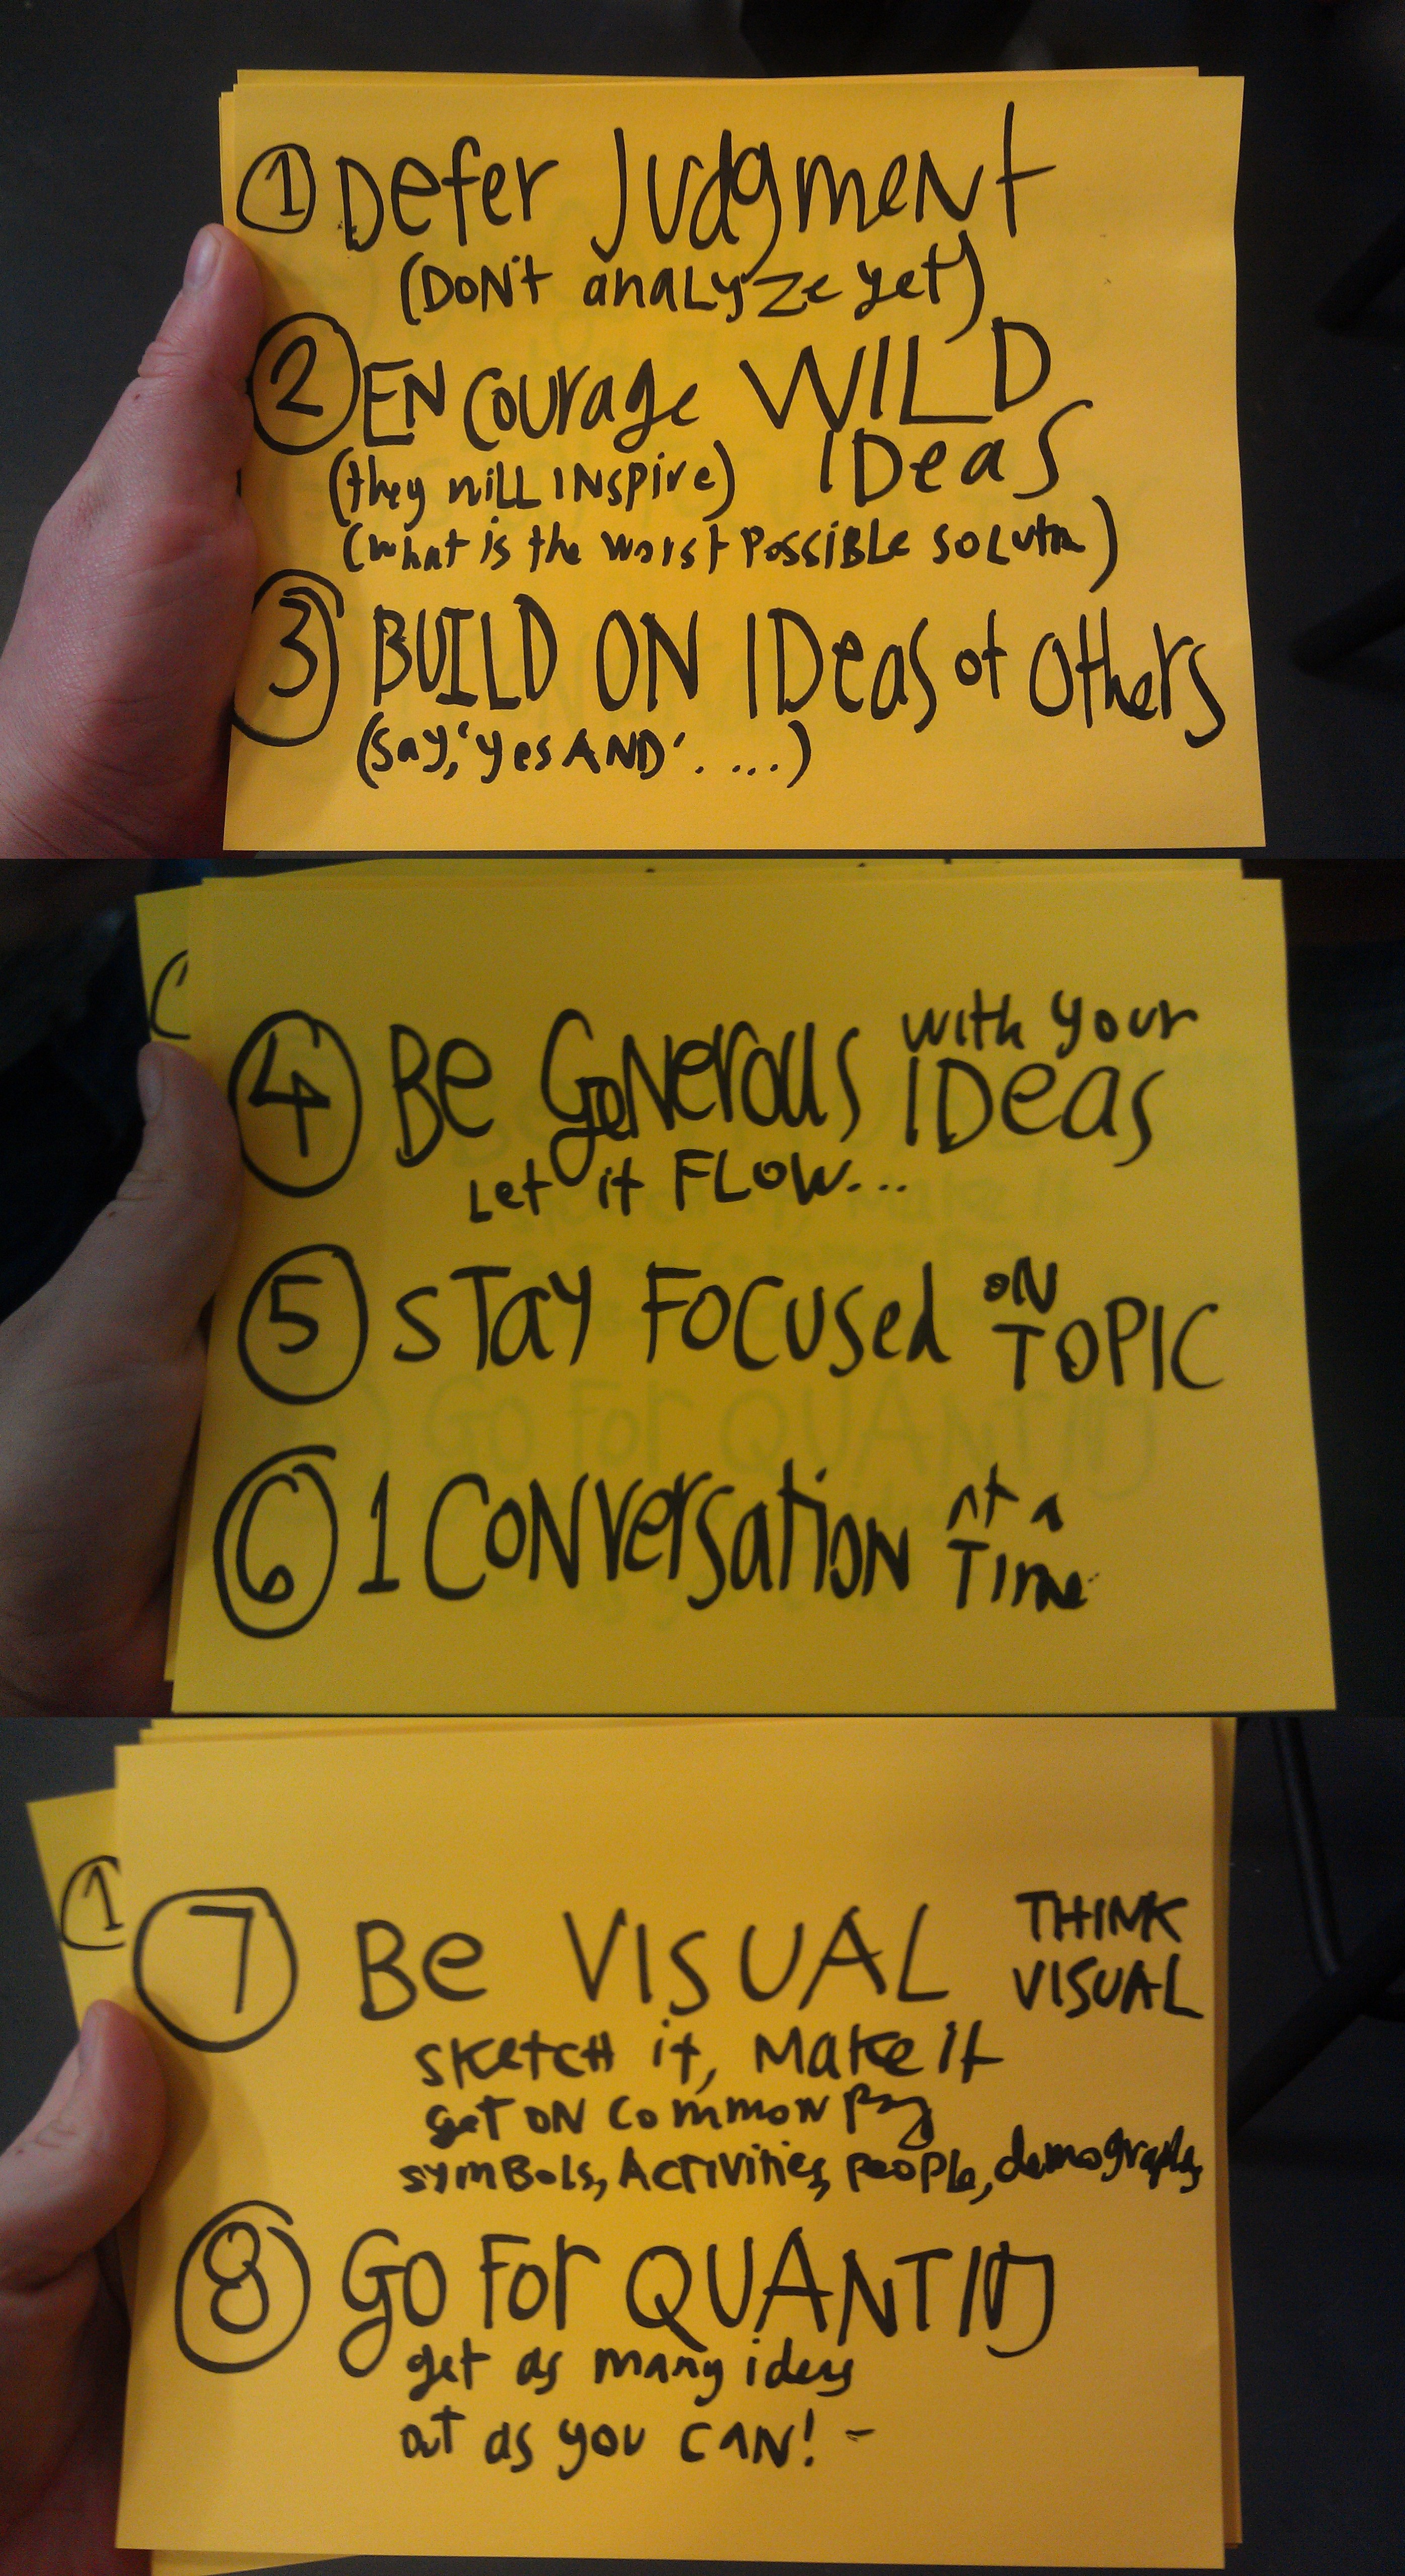 ① Defer Judgment
(DON't analyze yet)
② ENcourage WILD
IDeas
(they will INspire)
(what is the worst possible solutn)
③ BUILD ON IDeas of others
(say, 'yes AND' . ....)
④ Be GeNerous with your
IDeas
Let it FLOW...
⑤ sTay Focused ON
TOPIC
⑥ 1 CoNversatioN At a
Time
1
⑦ Be VISUAL THINK
VISUAL
sketcH it, Make It
get ON commoN
symBols, Activities, people,
⑧ GO For QUANTITy
get as many ideas
out as you CAN! -